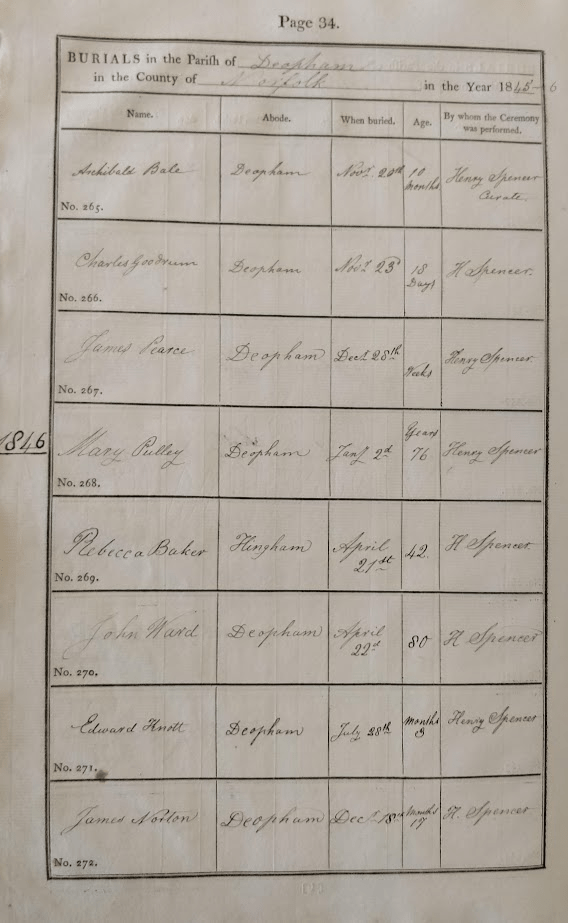 Page 34.
BURIALS in the Parish of Deopham
in the County of Norfolk in the Year 1845-6
Name. Abode. When buried. Age. By whom the Ceremony was performed.
Archibald Bale Deopham Novr. 20th 10 Months Henry Spencer Curate.
No. 265.
Charles Goodrum Deopham Novr. 23d 18 Days H Spencer.
No. 266.
James Pearce Deopham Decr. 28th Weeks Henry Spencer
No. 267.
1846
Mary Pulley Deopham Jany 2d Years 76 Henry Spencer
No. 268.
Rebecca Baker Hingham April 21st 42. H Spencer.
No. 269.
John Ward Deopham April 22d 80 H Spencer
No. 270.
Edward Knott Deopham July 28th Months 3 Henry Spencer
No. 271.
James Norton Deopham Decr. Months 17 H. Spencer
No. 272.